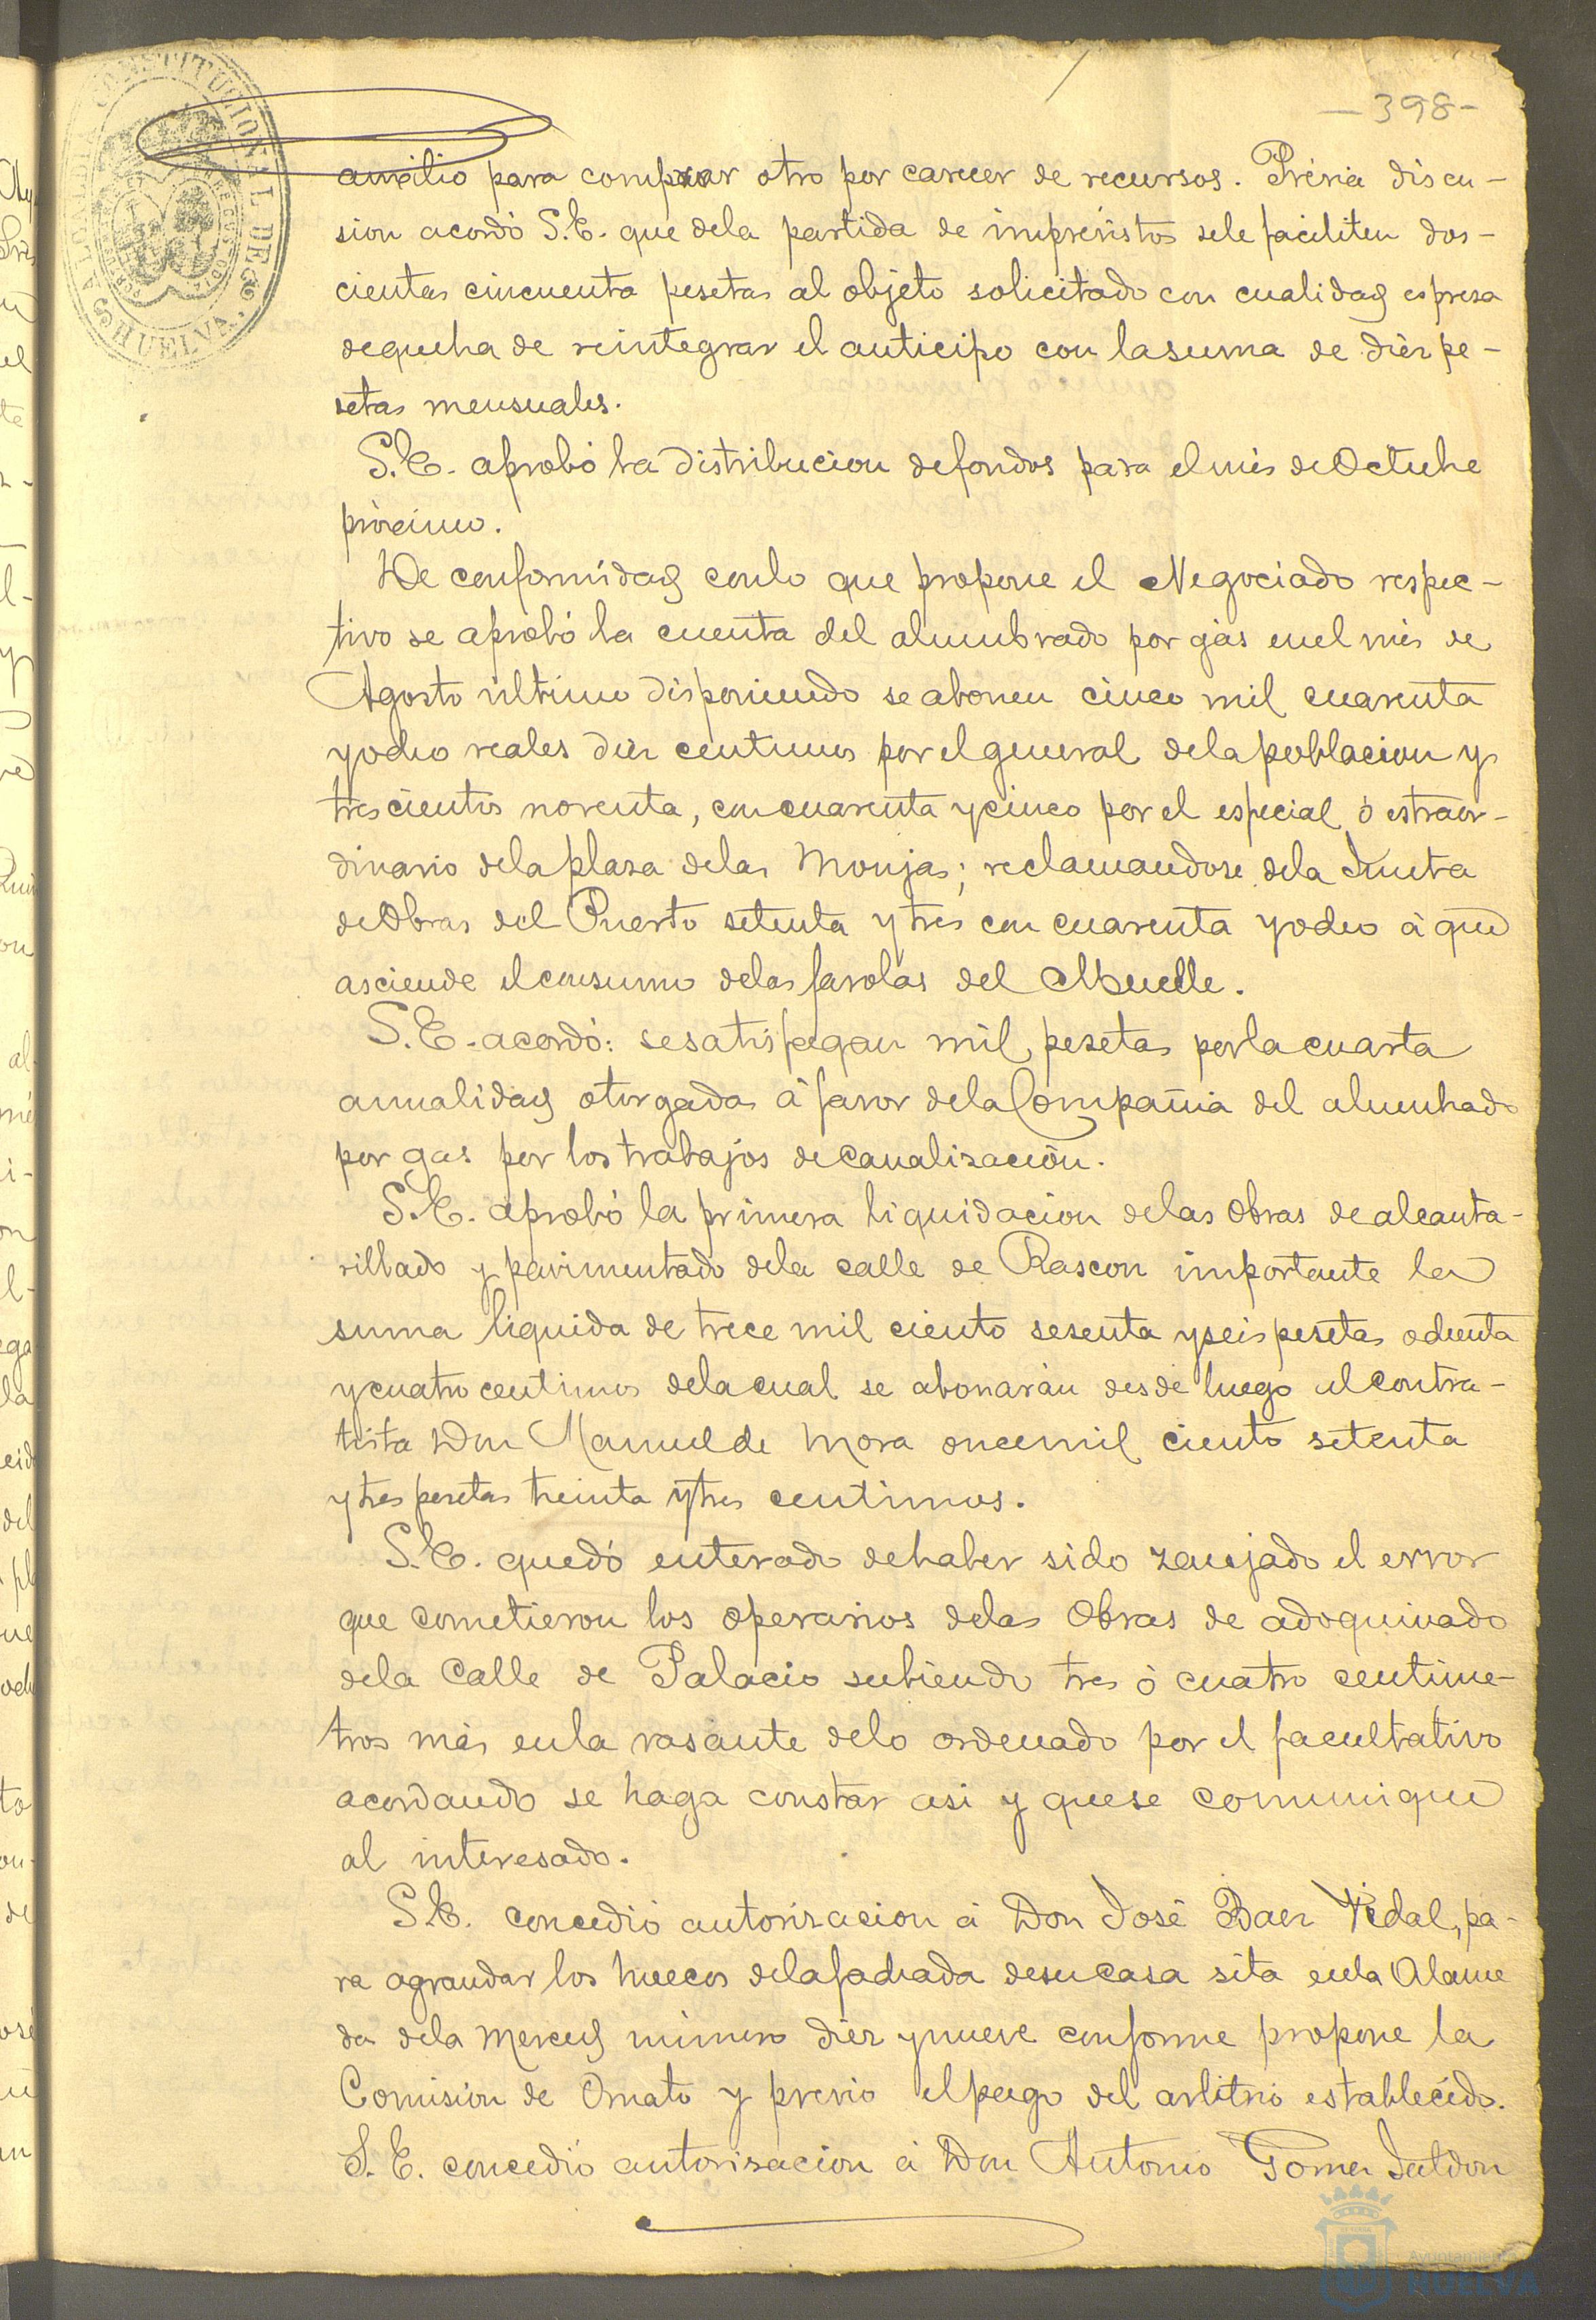 -398-
ALCALDIA CONSTITUCIONAL DE HUELVA.
auxilio para comprar otro por carecer de recursos. Prévia discu-
sion acordó S.E. que dela partida de imprevistos sele faciliten dos-
cientas cincuenta pesetas al objeto solicitado con cualidad espresa
de que ha de reintegrar el anticipo con la suma de diez pe-
setas mensuales.
S.E. aprobó la distribucion de fondos para el mes de Octubre
próximo.
De conformidad con lo que propone el Negociado respec-
tivo se aprobó la cuenta del alumbrado por gas en el mes de
Agosto último disponiendo se abonen cinco mil cuarenta
y ocho reales diez centimos por el general dela poblacion y
trescientos noventa, con cuarenta y cinco por el especial ó estraor-
dinario dela plaza delas Monjas; reclamandose dela Junta
de Obras del Puerto setenta y tres con cuarenta y ocho á que
asciende el consumo delas farolas del Muelle.
S.E. acordó: se satisfagan mil pesetas por la cuarta
anualidad otorgada á favor dela Compañia del alumbrado
por gas por los trabajos de canalización.
S.E. aprobó la primera liquidacion delas Obras de alcanta-
rillado y pavimentado dela calle de Rascon importante la
suma liquida de trece mil ciento sesenta y seis pesetas ochenta
y cuatro centimos dela cual se abonarán desde luego al contra-
tista Don Manuel de Mora once mil ciento setenta
y tres pesetas treinta y tres centimos.
S.E. quedó enterado de haber sido zanjado el error
que cometieron los operarios delas Obras de adoquinado
dela Calle de Palacio subiendo tres ó cuatro centime-
tros más en la rasante delo ordenado por el facultativo
acordando se haga constar asi y que se comunique
al interesado.
S.E. concedió autorizacion á Don José Baez Vidal, pa-
ra agrandar los huecos dela fachada de su casa sita en la Alame
da dela Merced número diez y nueve conforme propone la
Comisión de Ornato y previo el pago del arbitrio establecido.
S.E. concedió autorizacion á Don Antonio Gomez
Ayuntamiento
HUELVA